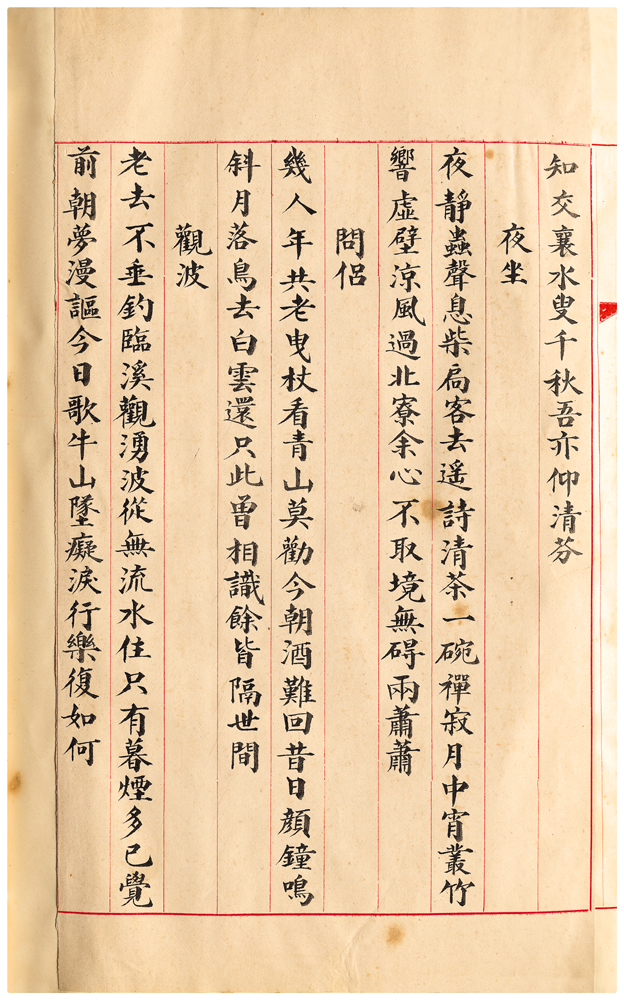 知交襄水叟千秋吾亦仰清芬
夜坐
夜靜蟲聲息柴扃客去遥詩清茶一碗禪寂月中宵叢竹
響虛壁涼風過北寮余心不取境無碍兩蕭蕭
問侶
幾人年共老曳杖看青山莫勸今朝酒難回昔日顔鐘鳴
斜月落鳥去白雲還只此曾相識餘皆隔世間
觀波
老去不垂釣臨溪觀湧波從無流水住只有暮煙多已覺
前朝夢漫謳今日歌牛山墜癡淚行樂復如何